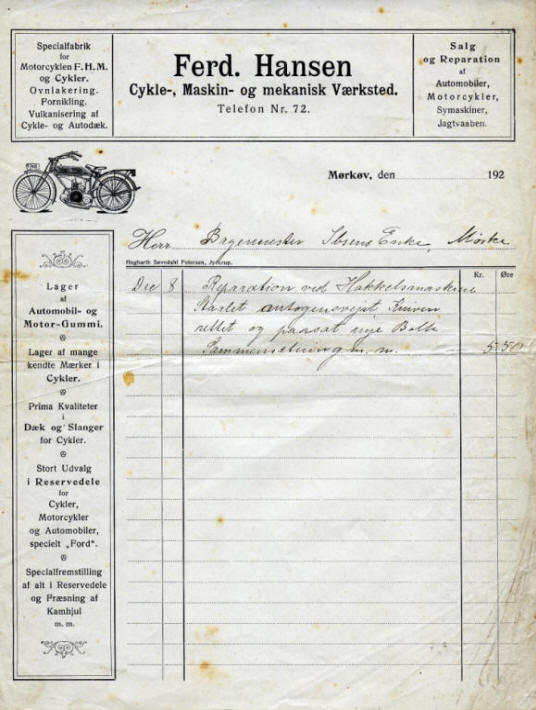 Specialfabrik
for
Motorcyklen F. H. M.
og Cykler.
Ovnlakering.
Fornikling.
Vulkanisering af
Cykle- og Autodæk.
Ferd. Hansen
Cykle-, Maskin- og mekanisk Værksted.
Telefon Nr. 72.
Salg
og Reparation
af
Automobiler,
Motorcykler,
Symaskiner,
Jagtvaaben.
Mørkøv, den 192
Herr Brygemester Ibsens Enke, Mørke
Hogbarth Søvedahl Petersen, Jyderup.
Kr. Øre
Dec 8 Reparation ved Hakkelsmaskine
Staalet autogensvejst Kniven
rettet og paasat nye Bolte
Sammensetning m. m. 5 50
Lager
af
Automobil- og
Motor-Gummi.
Lager af mange
kendte Mærker i
Cykler.
Prima Kvaliteter
i
Dæk og Slanger
for Cykler.
Stort Udvalg
i Reservedele
for
Cykler,
Motorcykler
og Automobiler,
specielt „Ford“.
Specialfremstilling
af alt i Reservedele
og Fræsning af
Kamhjul
m. m.